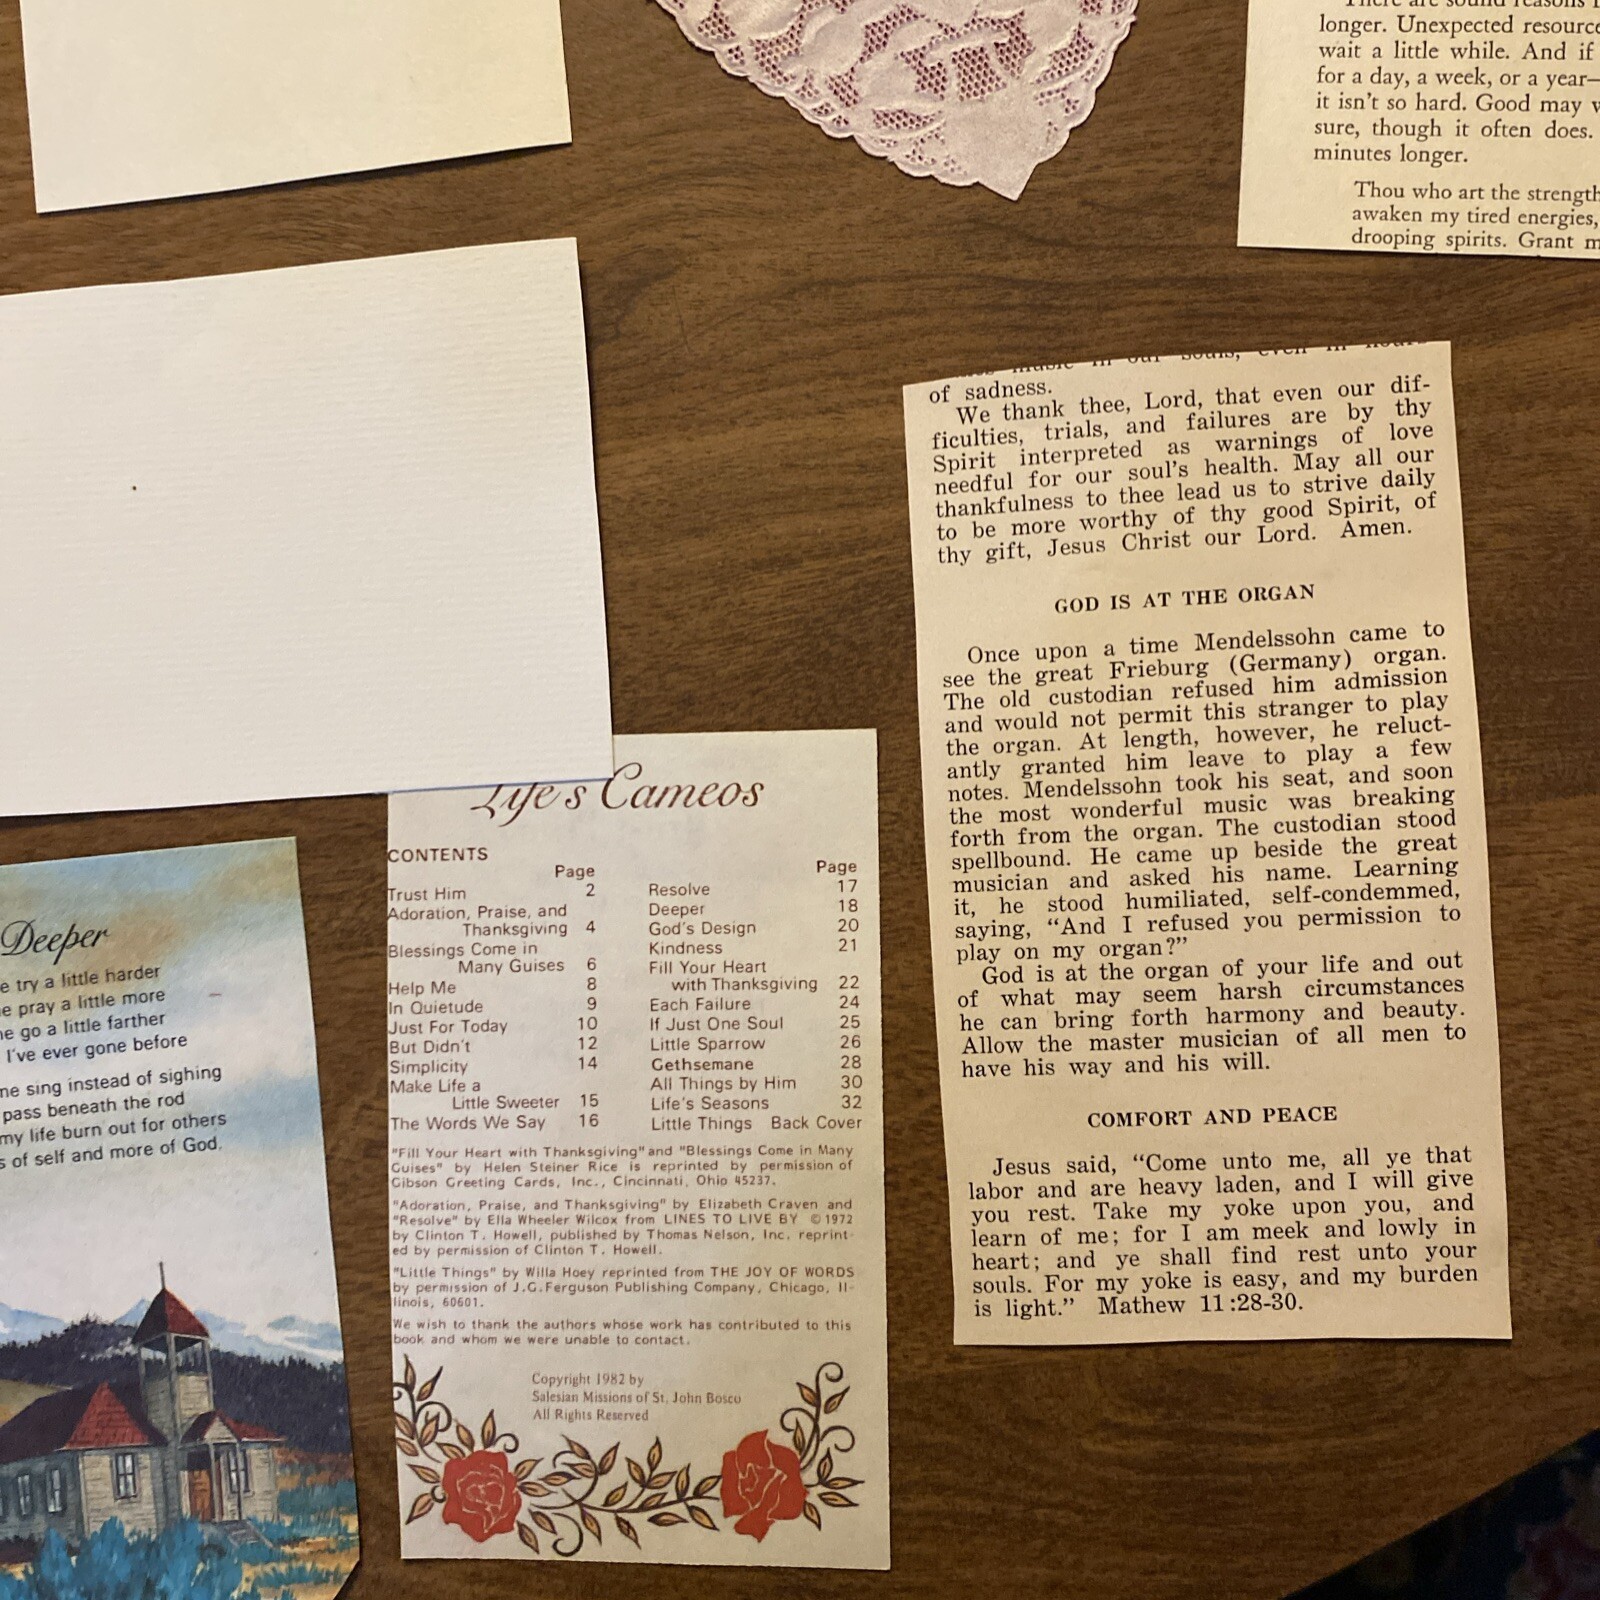 There are sound reasons
longer. Unexpected
wait a little while. And if
for a day, a week, or a year—
it isn't so hard. Good may
sure, though it often does.
minutes longer.
Thou who art the strength
awaken my tired energies,
drooping spirits. Grant
music in our souls, even in hours
of sadness.
We thank thee, Lord, that even our dif-
ficulties, trials, and failures are by thy
Spirit interpreted as warnings of love
needful for our soul's health. May all our
thankfulness to thee lead us to strive daily
to be more worthy of thy good Spirit, of
thy gift, Jesus Christ our Lord. Amen.
GOD IS AT THE ORGAN
Once upon a time Mendelssohn came to
see the great Frieburg (Germany) organ.
The old custodian refused him admission
and would not permit this stranger to play
the organ. At length, however, he reluct-
antly granted him leave to play a few
notes. Mendelssohn took his seat, and soon
the most wonderful music was breaking
forth from the organ. The custodian stood
spellbound. He came up beside the great
musician and asked his name. Learning
it, he stood humiliated, self-condemmed,
saying, "And I refused you permission to
play on my organ?"
God is at the organ of your life and out
of what may seem harsh circumstances
he can bring forth harmony and beauty.
Allow the master musician of all men to
have his way and his will.
COMFORT AND PEACE
Jesus said, "Come unto me, all ye that
labor and are heavy laden, and I will give
you rest. Take my yoke upon you, and
learn of me; for I am meek and lowly in
heart; and ye shall find rest unto your
souls. For my yoke is easy, and my burden
is light." Mathew 11:28-30.
Life's Cameos
CONTENTS
Page
Trust Him 2
Adoration, Praise, and
Thanksgiving 4
Blessings Come in
Many Guises 6
Help Me 8
In Quietude 9
Just For Today 10
But Didn't 12
Simplicity 14
Make Life a
Little Sweeter 15
The Words We Say 16
Page
Resolve 17
Deeper 18
God's Design 20
Kindness 21
Fill Your Heart
with Thanksgiving 22
Each Failure 24
If Just One Soul 25
Little Sparrow 26
Gethsemane 28
All Things by Him 30
Life's Seasons 32
Little Things Back Cover
"Fill Your Heart with Thanksgiving" and "Blessings Come in Many
Guises" by Helen Steiner Rice is reprinted by permission of
Gibson Greeting Cards, Inc., Cincinnati, Ohio 45237.
"Adoration, Praise, and Thanksgiving" by Elizabeth Craven and
"Resolve" by Ella Wheeler Wilcox from LINES TO LIVE BY © 1972
by Clinton T. Howell, published by Thomas Nelson, Inc. reprint-
ed by permission of Clinton T. Howell.
"Little Things" by Willa Hoey reprinted from THE JOY OF WORDS
by permission of J.G.Ferguson Publishing Company, Chicago, Il-
linois, 60601.
We wish to thank the authors whose work has contributed to this
book and whom we were unable to contact.
Copyright 1982 by
Salesian Missions of St. John Bosco
All Rights Reserved
Deeper
try a little harder
pray a little more
go a little farther
I've ever gone before
sing instead of sighing
pass beneath the rod
my life burn out for others
of self and more of God.